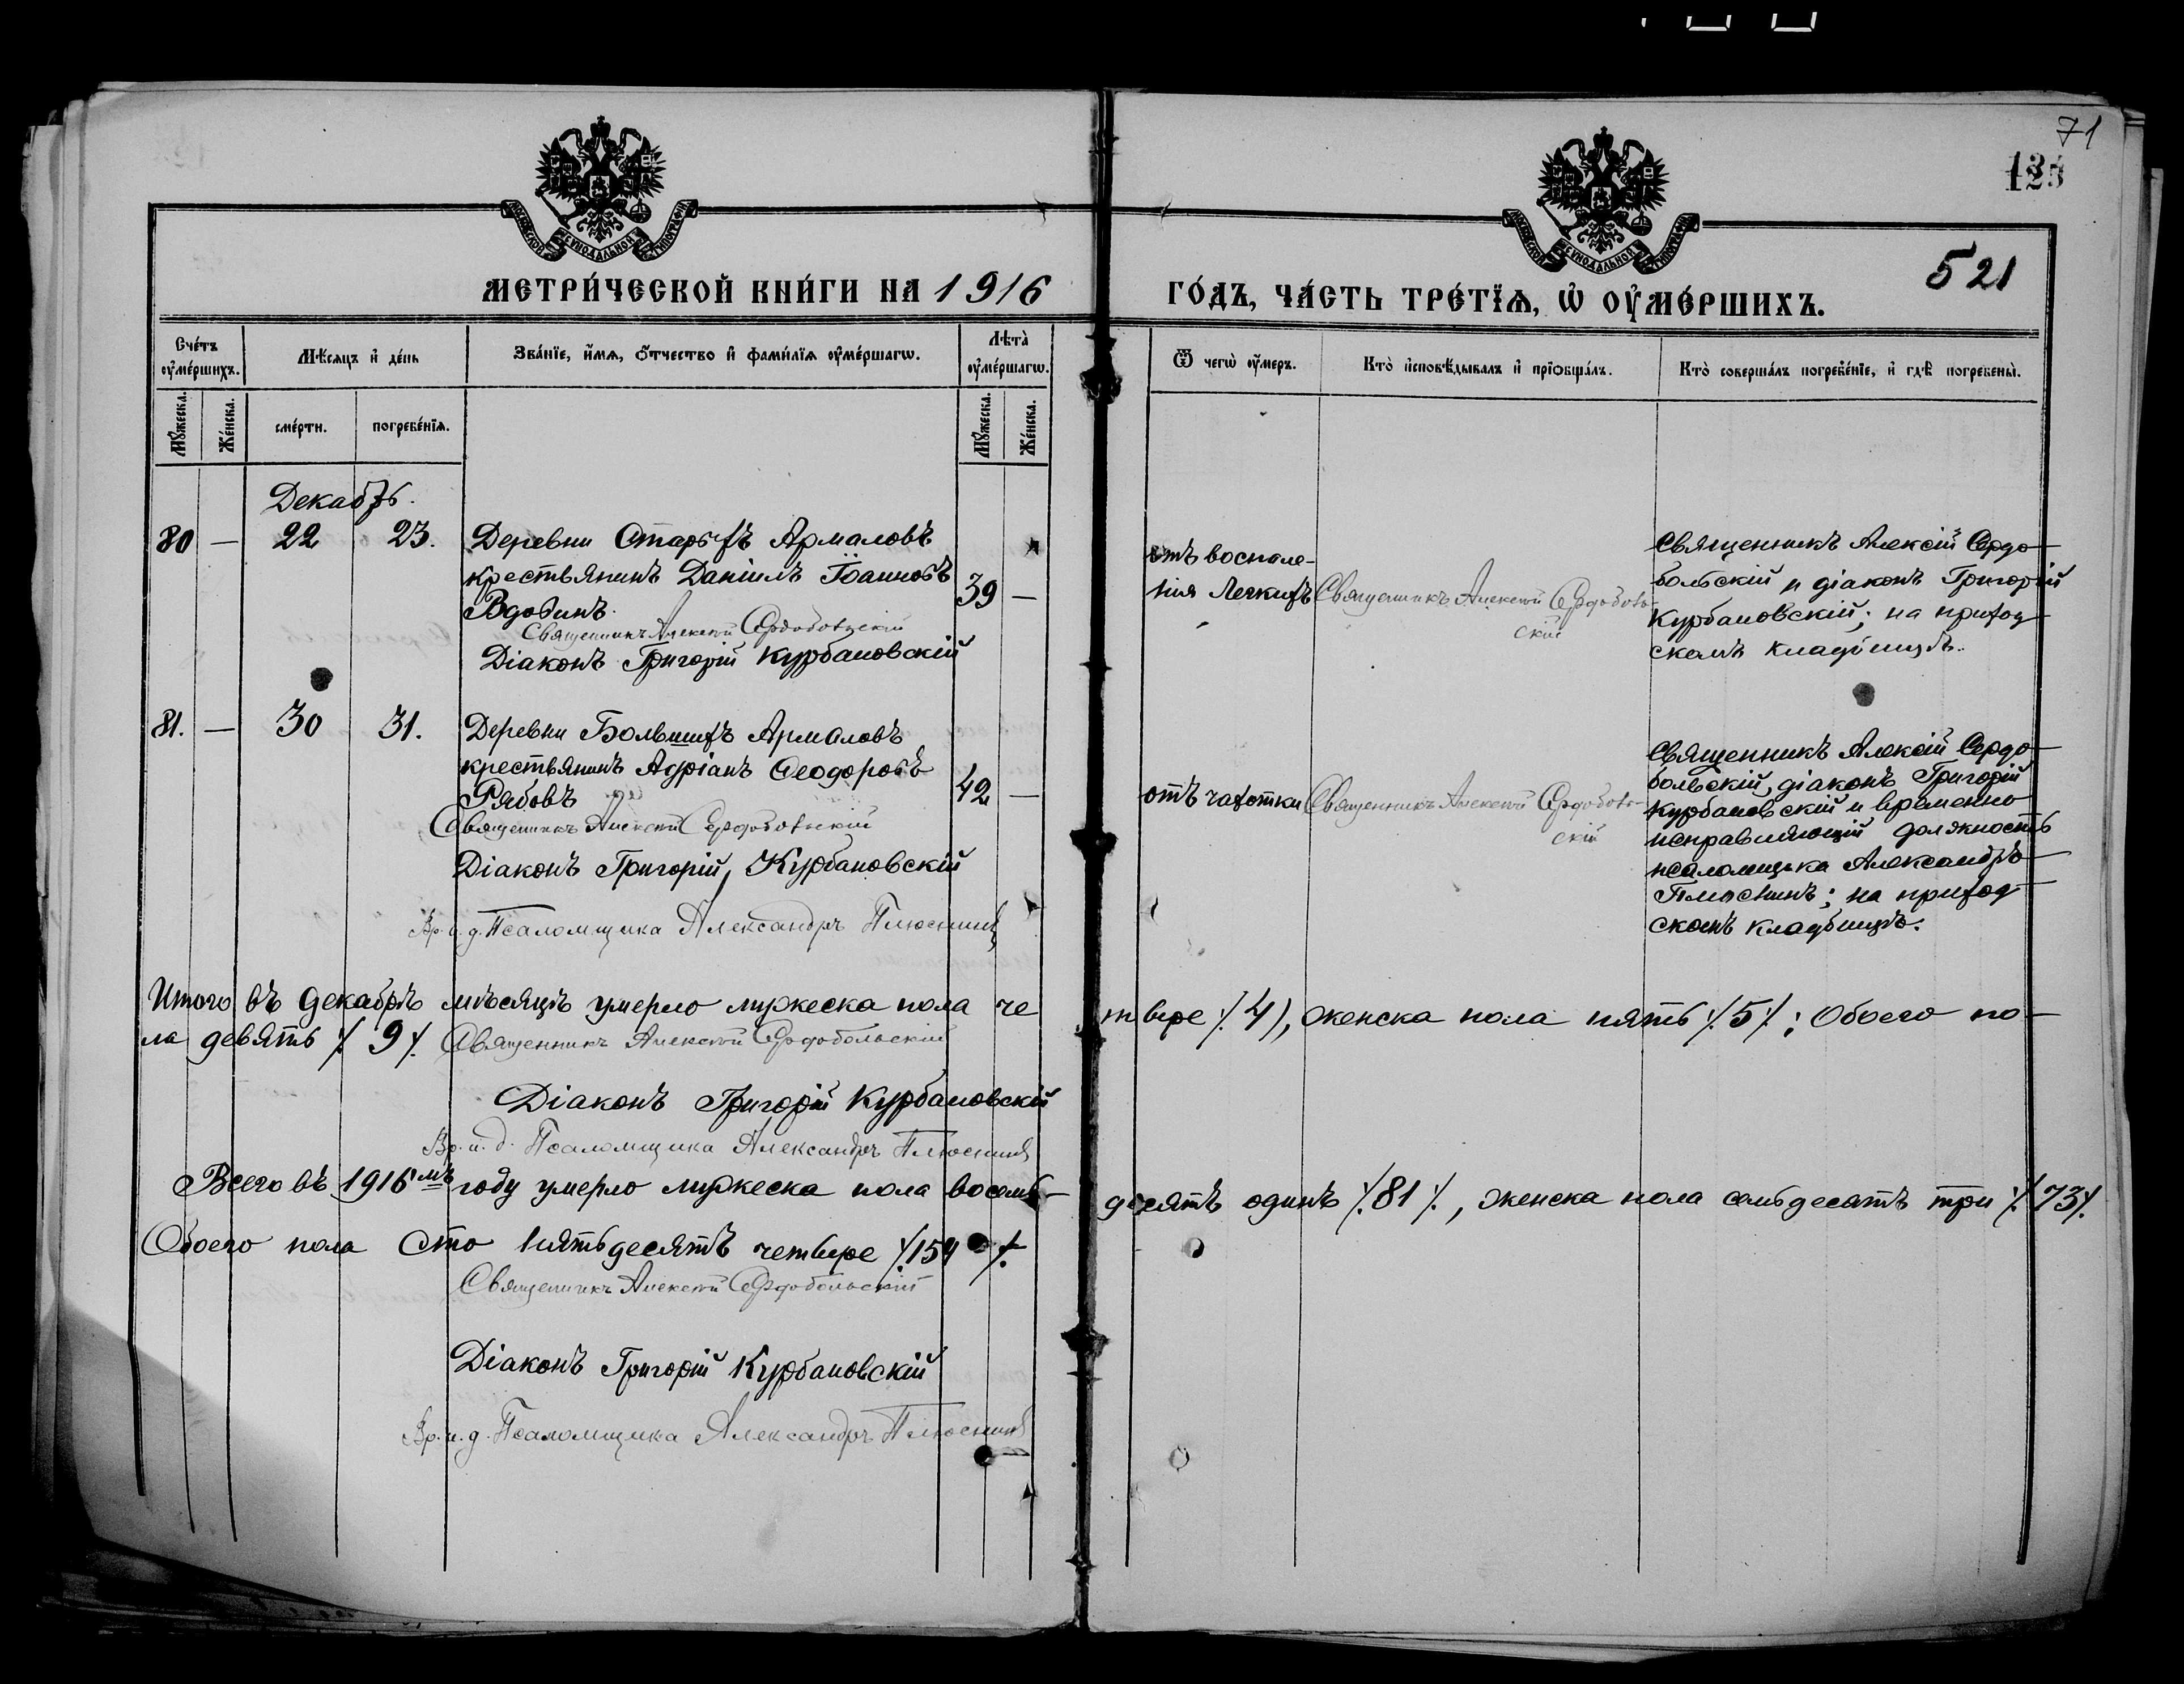 71
135
МОСКОВСКОЙ СѴНОДАЛЬНОЙ ТИПОГРАФІИ
МОСКОВСКОЙ СѴНОДАЛЬНОЙ ТИПОГРАФІИ
521
МЕТРИ́ЧЕСКОЙ КНИ́ГИ НА 1916
ГО́ДЪ, ЧА́СТЬ ТРЕ́ТЇѦ, Ѡ҆ ОУ҆МЕ́РШИХЪ.
Сче́тъ оу҆ме́ршихъ.
Мѣ́сяцъ и҆ де́нь
Зва́нїе, и҆́мѧ, ѻ҆́тчество и҆ фами́лїѧ оу҆ме́ршагѡ.
Лѣ́та̀ оу҆ме́ршагѡ.
Ѿ чегѡ̀ оу҆́меръ.
Кто̀ и҆сповѣ́дывалъ и҆ прїѻбща́лъ.
Кто̀ соверша́лъ погребе́нїе, и҆ гдѣ̀ погребены̀.
Мꙋ́жеска.
Же́нска.
сме́рти.
погребе́нїѧ.
Мꙋ́жеска.
Же́нска.
Декабрь.
80 — 22 23. Деревни Старыхъ Армаловъ
крестьянинъ Даніилъ Іоанновъ 39 —
Вдовинъ.
Священникъ Алексій Сердобольскій
Діаконъ Григорій Курбановскій
отъ воспале-
нія Легкихъ
Священникъ Алексій Сердоболь-
скій
Священникъ Алексій Сердо-
больскій и діаконъ Григорій
Курбановскій; на приход-
скомъ кладбищѣ.
81. — 30 31. Деревни Большихъ Армаловъ
крестьянинъ Адріанъ Ѳеодоровъ
Рябовъ 42 —
Священникъ Алексій Сердобольскій
Діаконъ Григорій Курбановскій
Вр. и. д. Псаломщика Александръ Плюснинъ
отъ чахотки
Священникъ Алексій Сердоболь-
скій
Священникъ Алексій Сердо-
больскій, діаконъ Григорій
Курбановскій и временно
исправляющій должность
псаломщика Александръ
Плюснинъ; на приход-
скомъ кладбищѣ.
Итого въ декабрѣ мѣсяцѣ умерло мужеска пола че
твере /.4), женска пола пять /.5/.; Обоего по-
ла девять /. 9 /. Священникъ Алексій Сердобольскій
Діаконъ Григорій Курбановскій
Вр. и. д. Псаломщика Александръ Плюснинъ
Всего въ 1916мъ году умерло мужеска пола восемь-
десятъ одинъ /.81/., женска пола семьдесятъ три /.73/.
Обоего пола Сто пятьдесятъ четвере /.154 /.
Священникъ Алексій Сердобольскій
Діаконъ Григорій Курбановскій
Вр. и. д. Псаломщика Александръ Плюснинъ